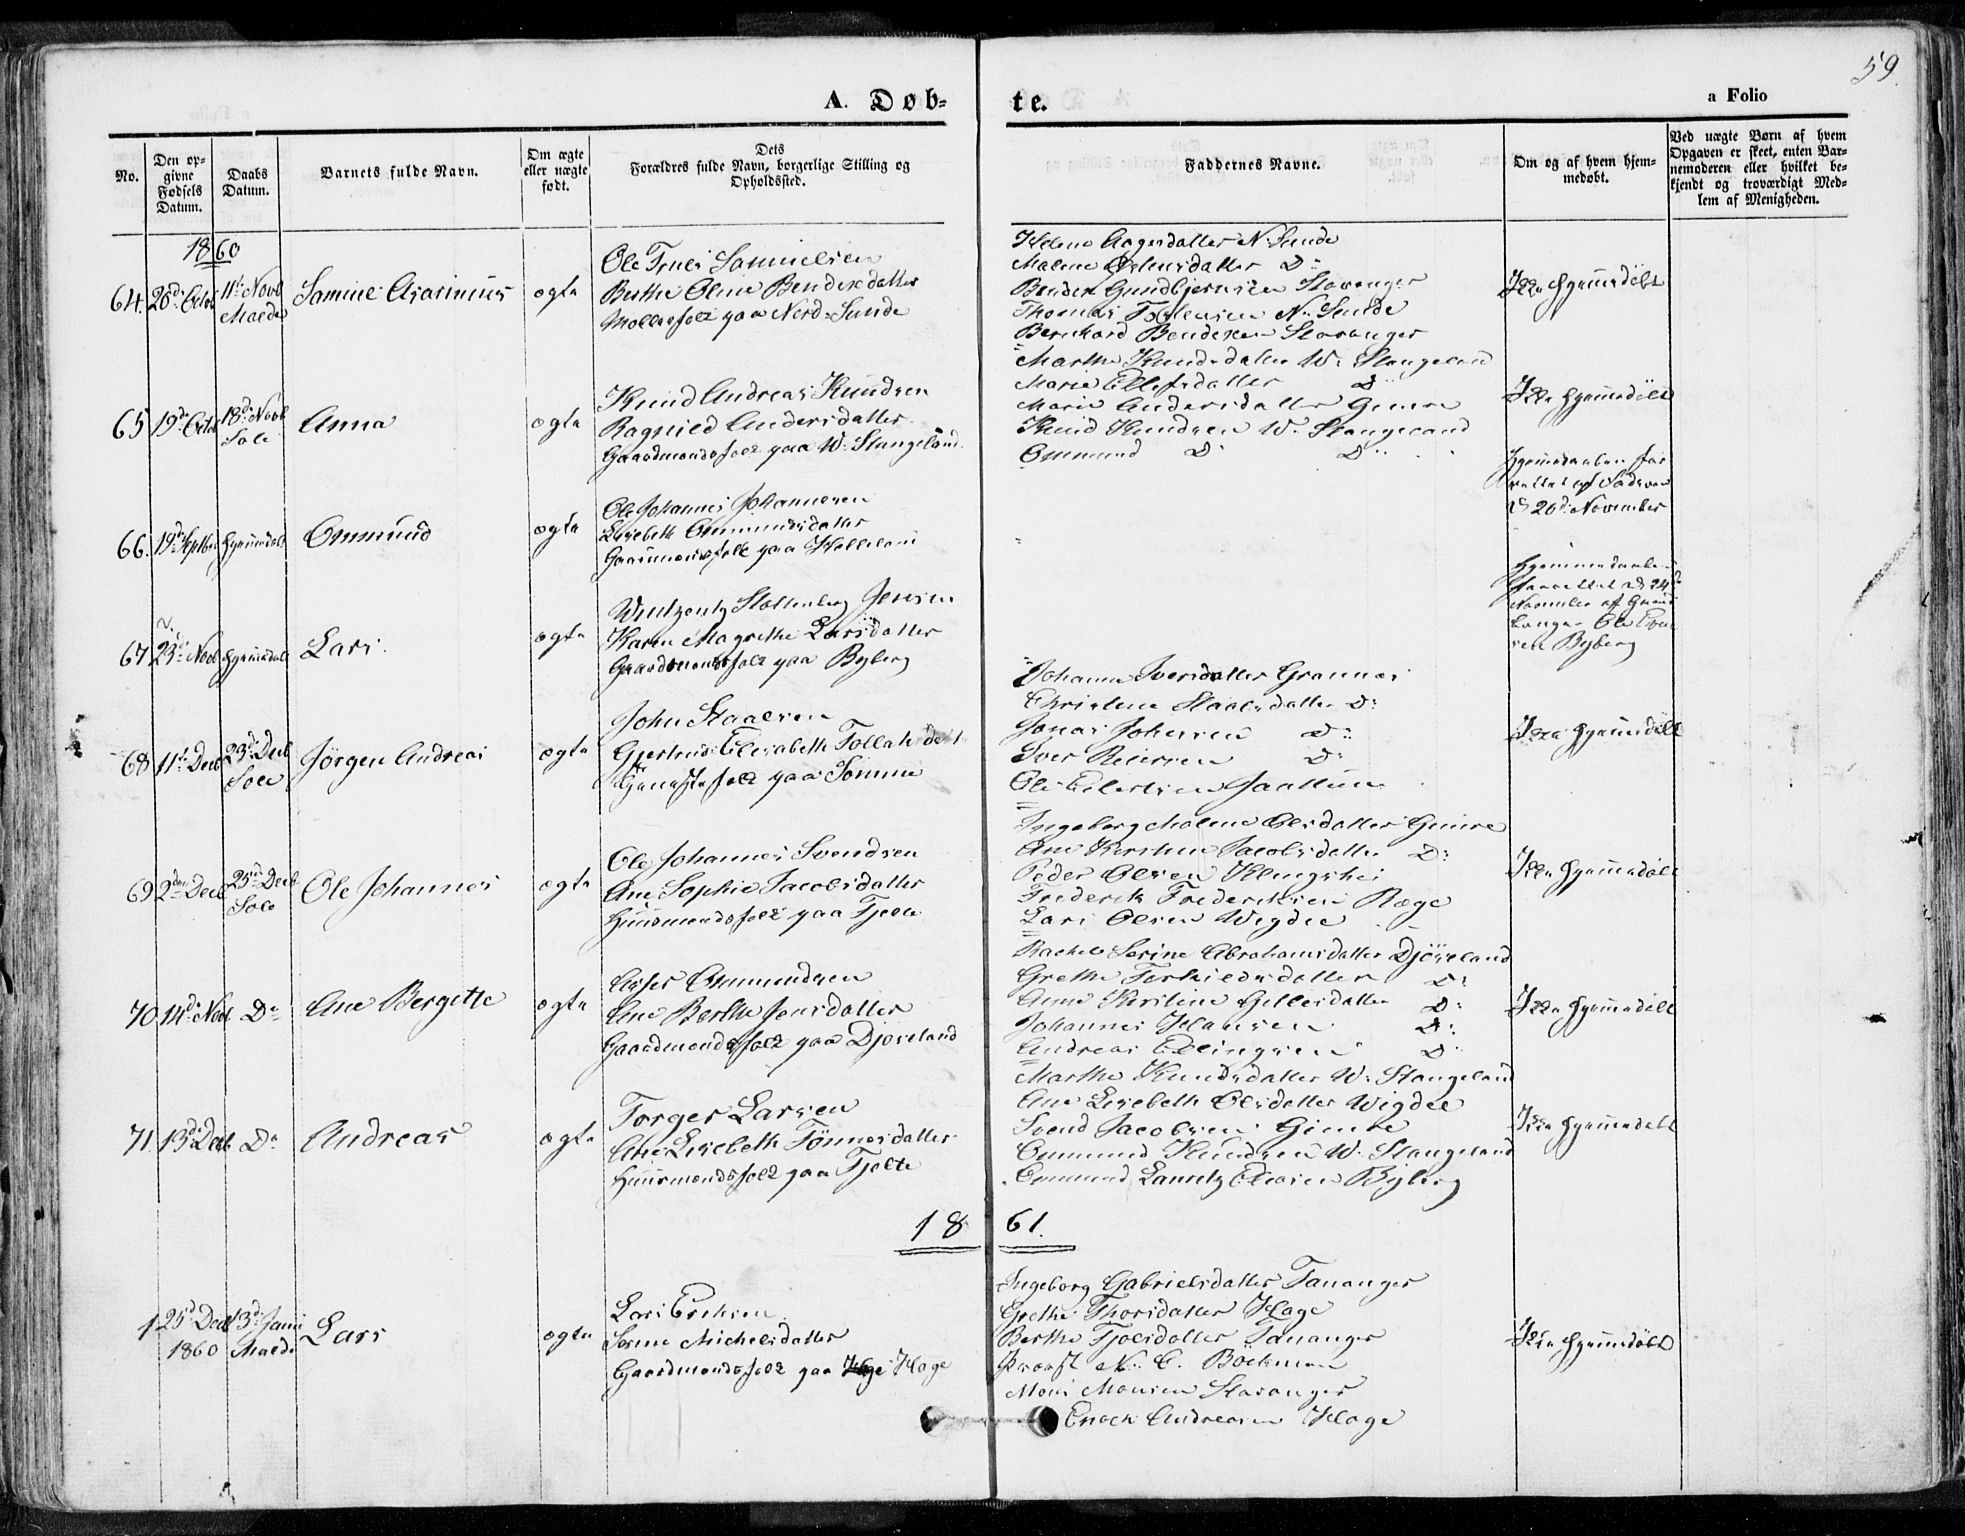 59.
A. Døb-
te.
a Folio
No.
Den op-
givne
Fødsels
Datum.
Daabs
Datum.
Barnets fulde Navn.
Om ægte
eller uægte
født.
Dets
Forældres fulde Navn, borgerlige Stilling og
Opholdssted.
Faddernes Navne.
Om og af hvem hjem-
medøbt.
Ved uægte Børn af hvem
Opgaven er skeet, enten Bar-
nemoderen eller hvilket be-
kjendt og troværdigt Med-
lem af Menigheden.
1860
64. 26de Octob 11te Novb
Malde
Samuel Asarinius
ægte
Ole Samuelsen
Berthe Oline Bendixdatter
Møllerfolk paa Nord-Sunde
Helene Aagesdatter N. Sunde
Malene D:
Bendix Gundbjørnsen Stavanger
Thomas N. Sunde
Bernhard Bendixen Stavanger
Ikke hjemmedøbt
65 19de Octob 18de Novb
Sole
Anna
ægte
Knud Andreas Knudsen
Ragnild Andersdatter
Gaardmandsfolk paa W. Stangeland.
Marthe Knudsdatter W. Stangeland
Marie Ellefsdatter D:
Marie Andersdatter Gimre
Knud Knudsen W. Stangeland
Ommund D: D:
Ikke hjemmedøbt
66. 19de Septbr hjemmedøbt
Ommund
ægte
Ole Johannes Johannesen
Lisebeth Ommundsdatter
Gaardmandsfolk paa
Hjemmedaaben for
rettet af Faderen
d 20de November
67 23de Novb hjemmedøbt
Lars.
ægte
Wintzentz Stoltenberg Jensen
Karen Magrethe Larsdatter
Gaardmandsfolk paa Byberg
Hjemmedaaben
forrettet d 24de
November af Gaard
Ole
sen Byberg
68 11te Decb 23de Decb
Sole
Jørgen Andreas
ægte
John Staalesen
Gjertrud Elisabeth
Tjenestefolk paa Sømme
Johanne Iversdatter Grannes
Christine Staalesdatter D:
Jonas Johnsen D:
Iver Reiersen D:
Ole Eilertsen Jaattun
Ikke hjemmedøbt
69 2den Decb 25de Decb
Sole
Ole Johannes
ægte
Ole Johannes Svendsen
Ane Sophie Jacobsdatter
Huusmandsfolk paa Tjelte
Ingeborg Malene Olsdatter Gimre
Ane Kirstine Jacobsdatter D:
Peder Olsen
Frederik Frederiksen Røge
Lars Olsen Wigdel
Ikke hjemmedøbt
70 14de Novb Do
Ane Bergette
ægte
Asser Ommundsen
Ane Berthe Jensdatter
Gaardmandsfolk paa Djøseland
Rachel Serine Abrahamsdatter Djøseland
Grethe Torkieldsdatter D:
Anne Kirstine D:
Johannes Hansen D:
Andreas Erlingsen D:
Ikke hjemmedøbt
71 13de Decb Do
Andreas
ægte
Torger Larsen
Ane Lisebeth Tønnesdatter
Huusmandsfolk paa Tjelte
Marthe Knudsdatter W. Stangeland
Ane Lisebeth Olsdatter Wigdel
Svend Jacobsen Gimre
Ommund Knudsen W. Stangeland
Ommund Lauritz Olsen Byberg
Ikke hjemmedøbt
1861.
1 25de Decb 13de Janu
1860 Malde
Lars
ægte
Lars Eriksen
Serine Michelsdatter
Gaardmandsfolk paa Hage
Ingeborg Gabrielsdatter Tananger
Grethe Thorsdatter Hage
Berthe Tananger
Provst N. C. Böckman
Mons Monsen Stavanger
Enoch Andreasen Hage
Ikke hjemmedøbt